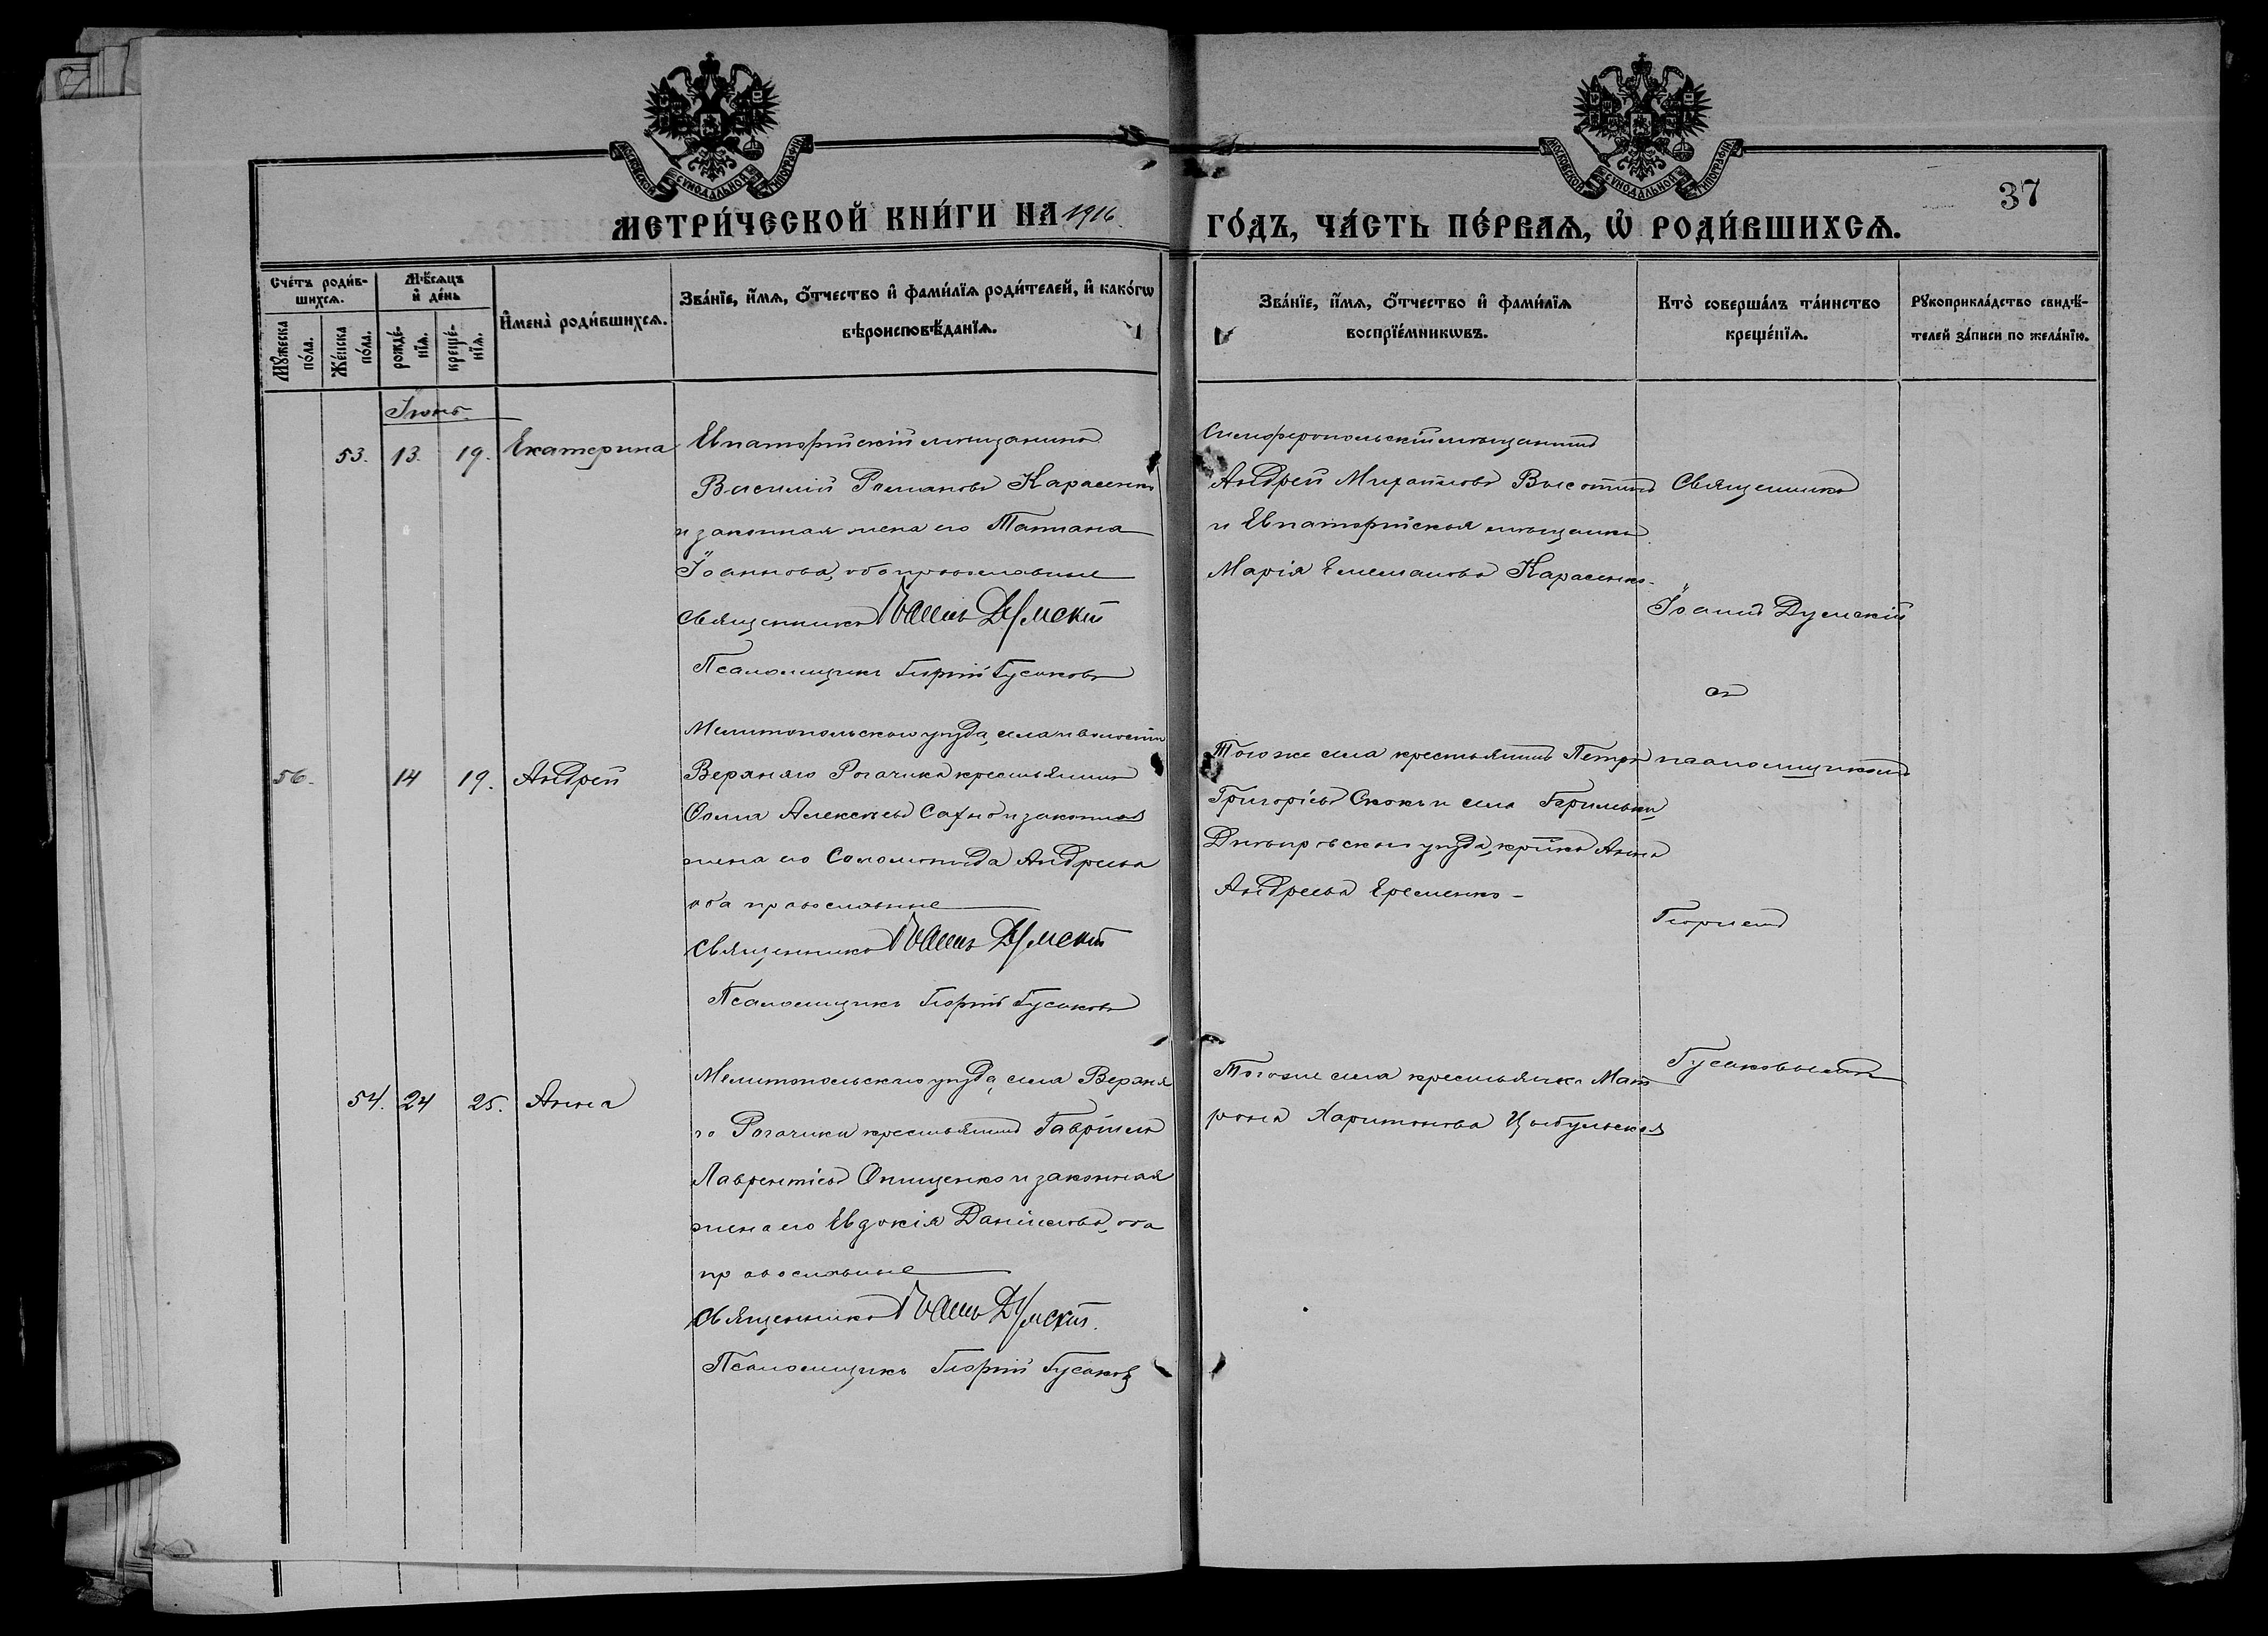 МОСКОВСКОЙ СУНОДАЛЬНОЙ ТИПОГРАФІИ
МОСКОВСКОЙ СУНОДАЛЬНОЙ ТИПОГРАФІИ
37
МЕТРИ́ЧЕСКОЙ КНИ́ГИ НА 1916
ГО́ДЪ, ЧА́СТЬ ПЕ́РВАѦ, Ѽ РОДИ́ВШИХСѦ.
Сче́тъ роди́в-
шихсѧ.
Мѣ́сѧцъ
и҆ де́нь
Мꙋ́жеска
по́ла.
Же́нска
по́ла.
рожде́-
нїѧ.
креще́-
нїѧ.
И҆мена̀ роди́вшихсѧ.
Зва́нїе, и҆́мѧ, ѻ҆́тчество и҆ фами́лїѧ роди́телей, и҆ како́гѡ
вѣроисповѣ́данїѧ.
Зва́нїе, и҆́мѧ, ѻ҆́тчество и҆ фами́лїѧ
воспрїе́мникѡвъ.
Кто̀ соверша́лъ та́инство
креще́нїѧ.
Рꙋкоприкла́дство свидѣ́-
телей за́писи по жела́нїю.
Іюнь
53. 13. 19. Екатерина
Евпаторійскій мѣщанинъ
Василій Романовъ Карасенко
и законная жена его Татiана
Іоаннова, оба православные
Священникъ Іоаннъ Думскій
Псаломщикъ Георгій Гусаковъ
Симферопольскій мѣщанинъ
Андрей Михайловъ Высотинъ
и Евпаторійская мѣщанка
Марія Емельянова Карасенко-
Священникъ
Іоаннъ Думскій
съ
псаломщикомъ
Георгіемъ
Гусаковымъ
56. 14 19. Андрей
Мелитопольскаго уѣзда, села и волости
Верхняго Рогачика крестьянинъ
Ѳома Алексѣевъ Сахно и законная
жена его Соломонида Андреева
оба православные
Священникъ Іоаннъ Думскій
Псаломщикъ Георгій Гусаковъ
Того же села крестьянинъ Петръ
Григорьевъ Скокъ и села
Днѣпровскаго уѣзда, кр-ка Анна
Андреева Еременко-
54. 24 25. Анна
Мелитопольскаго уѣзда, села Верхня
го Рогачика крестьянинъ Гавріилъ
Лаврентіевъ Онищенко и законная
жена его Евдокія Даніилова, оба
православные
Священникъ Іоаннъ Думскій.
Псаломщикъ Георгій Гусаковъ
Того же села крестьянка Мат
рона Харитонова Цыбульская